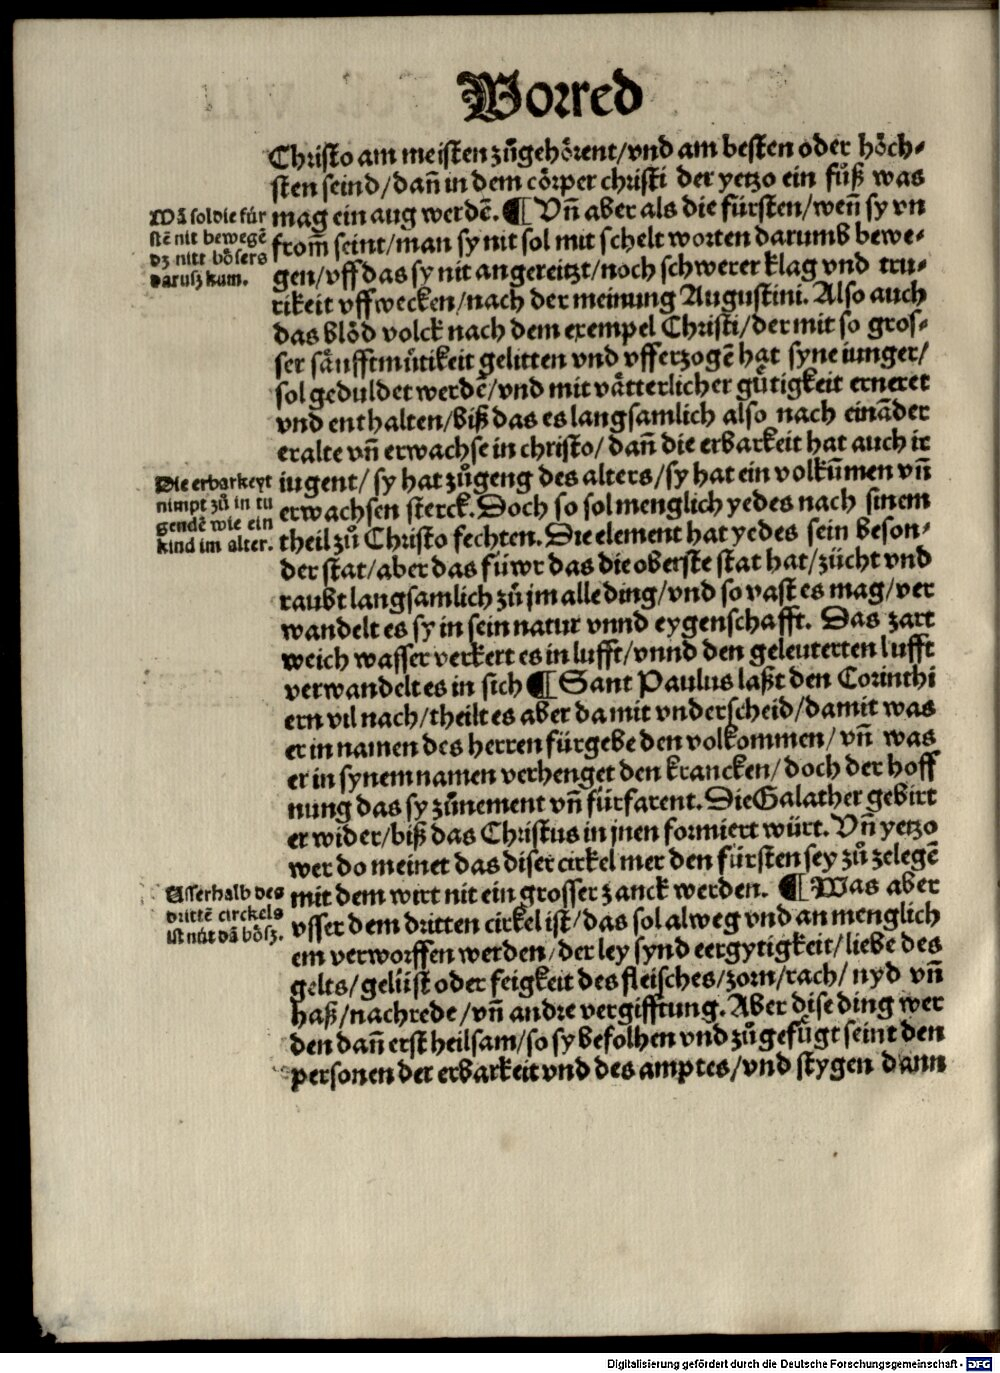 Vorred
Christo am meisten zůgehörent/vnd am besten oder höch-
sten seind/dañ in dem cörper christi der yetzo ein fůß was
mag ein aug werdē. ¶ Vñ aber als die fürsten/weñ sy vn
from̄ seint/man sy nit sol mit schelt worten darumb bewe-
gen/vff das sy nit angereitzt/noch schwerer klag vnd tru-
rikeit vff wecken/nach der meinung Augustini. Also auch
das blöd volck nach dem exempel Christi/der mit so gros-
ser sänfftmütikeit gelitten vnd vfferzogē hat syne iunger/
sol geduldet werdē/vnd mit vätterlicher gütigkeit erneret
vnd enthalten/biß das es langsamlich also nach eināder
eralte vñ erwachse in christo/dañ die erbarkeit hat auch ir
iugent/sy hat zůgeng des alters/sy hat ein volkum̄en vñ
erwachsen sterck. Doch so sol menglich yedes nach sinem
theil zů Christo fechten. Die element hat yedes sein beson-
der stat/aber das füwr das die oberste stat hat/zücht vnd
raubt langsamlich zů jm alle ding/vnd so vast es mag/ver
wandelt es sy in sein natur vnnd eygenschafft. Das zart
weich wasser verkert es in lufft/vnnd den geleuterten lufft
verwandelt es in sich ¶ Sant Paulus laßt den Corinthi
ern vil nach/theilt es aber da mit vnderscheid/damit was
er in namen des herren fürgebe den volkommen/vñ was
er in synem namen verhenget den krancken/doch der hoff
nung das sy zůnement vñ fürfarent. Die Galather gebirt
er wider/biß das Christus in jnen formiert würt. Vñ yetzo
wer do meinet das diser cirkel mer den fürsten sey zů zelegē
mit dem wirt nit ein grosser zanck werden. ¶ Was aber
vsser dem dritten cirkel ist/das sol alweg vnd an menglich
em verworffen werden/der ley synd eergytigkeit/liebe des
gelts/gelüst oder feigkeit des fleisches/zorn/rach/nyd vñ
haß/nachrede/vñ andre vergifftung. Aber dise ding wer
den dañ erst heilsam/so sy befolhen vnd zůgefügt seint den
personen der erbarkeit vnd des amptes/vnd stygen dann
Wā sol die für
stē nit bewegē
dz nitt bösers
darusz kum.
Die erbarkeyt
nimpt zů in tu
gendē wie ein
kind im alter.
Usserhalb des
drittē circkels
ist nüt dā bösz.
Digitalisierung gefördert durch die Deutsche Forschungsgemeinschaft - DFG